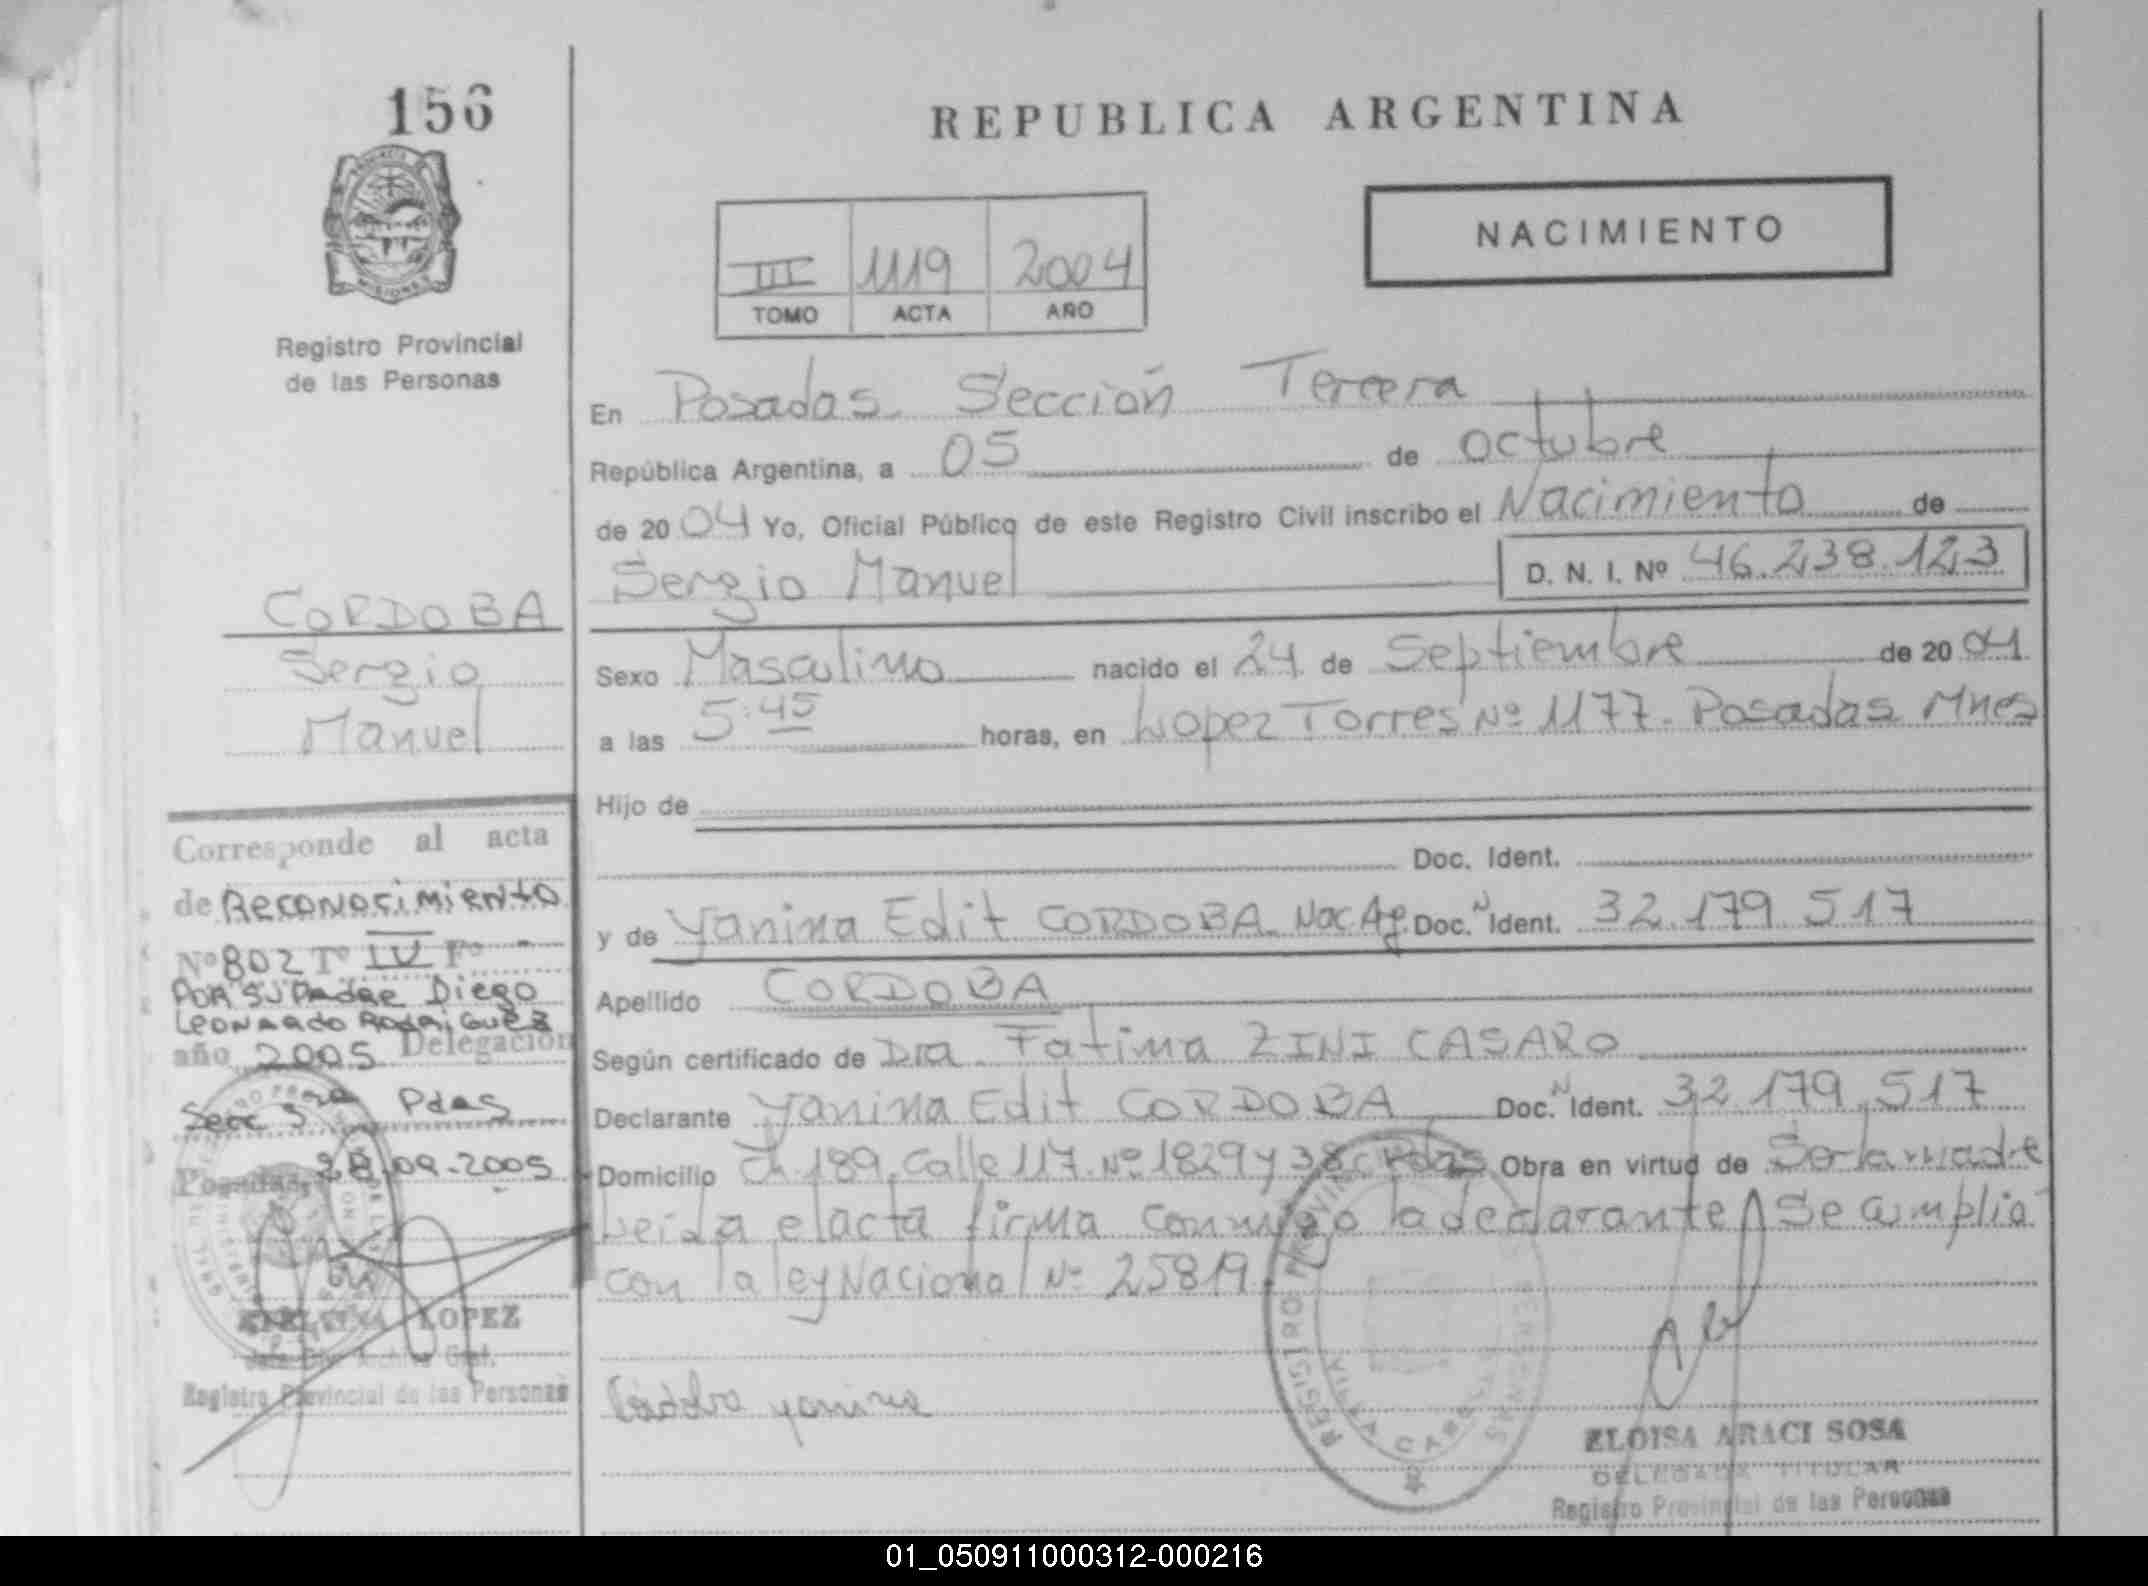 156
REPUBLICA ARGENTINA
NACIMIENTO
III 1119 2004
TOMO ACTA AÑO
Registro Provincial
de las Personas
En Posadas Sección Tercera
República Argentina, a 05 de octubre
de 2004 Yo, Oficial Público de este Registro Civil inscribo el Nacimiento de
Sergio Manuel D. N. I. Nº 46.238.123
CORDOBA
Sergio
Manuel
Sexo Masculino nacido el 24 de Septiembre de 2004
a las 5:45 horas, en Lopez Torres Nº 1177. Posadas Mnes
Hijo de
Doc. Ident.
y de Yanina Edit CORDOBA. Nac Ag. Doc. N Ident. 32.179.517
Apellido CORDOBA
Según certificado de Dra. Fatima ZINI CASARO
Declarante Yanina Edit CORDOBA Doc. N Ident. 32.179.517
Domicilio Ch. 189. Calle 117. Nº 1829 y 38 c Pdas Obra en virtud de Ser la madre
Leída el acta firma conmigo la declarante Se amplió
con la ley Nacional Nº 25819.
Corresponde al acta
de Reconocimiento
Nº 802 Tº IV Fº -
POR SU Padre Diego
Leonardo Rodriguez
año 2005 Delegación
Secc 3ra Pdas
Posadas, 28.09-2005
LOPEZ
Jefe Div. Archivo Gral.
Registro Provincial de las Personas
Córdoba yanina
REGISTRO PROVINCIAL
ELOISA ARACI SOSA
DELEGADA TITULAR
Registro Provincial de las Personas
01_050911000312-000216